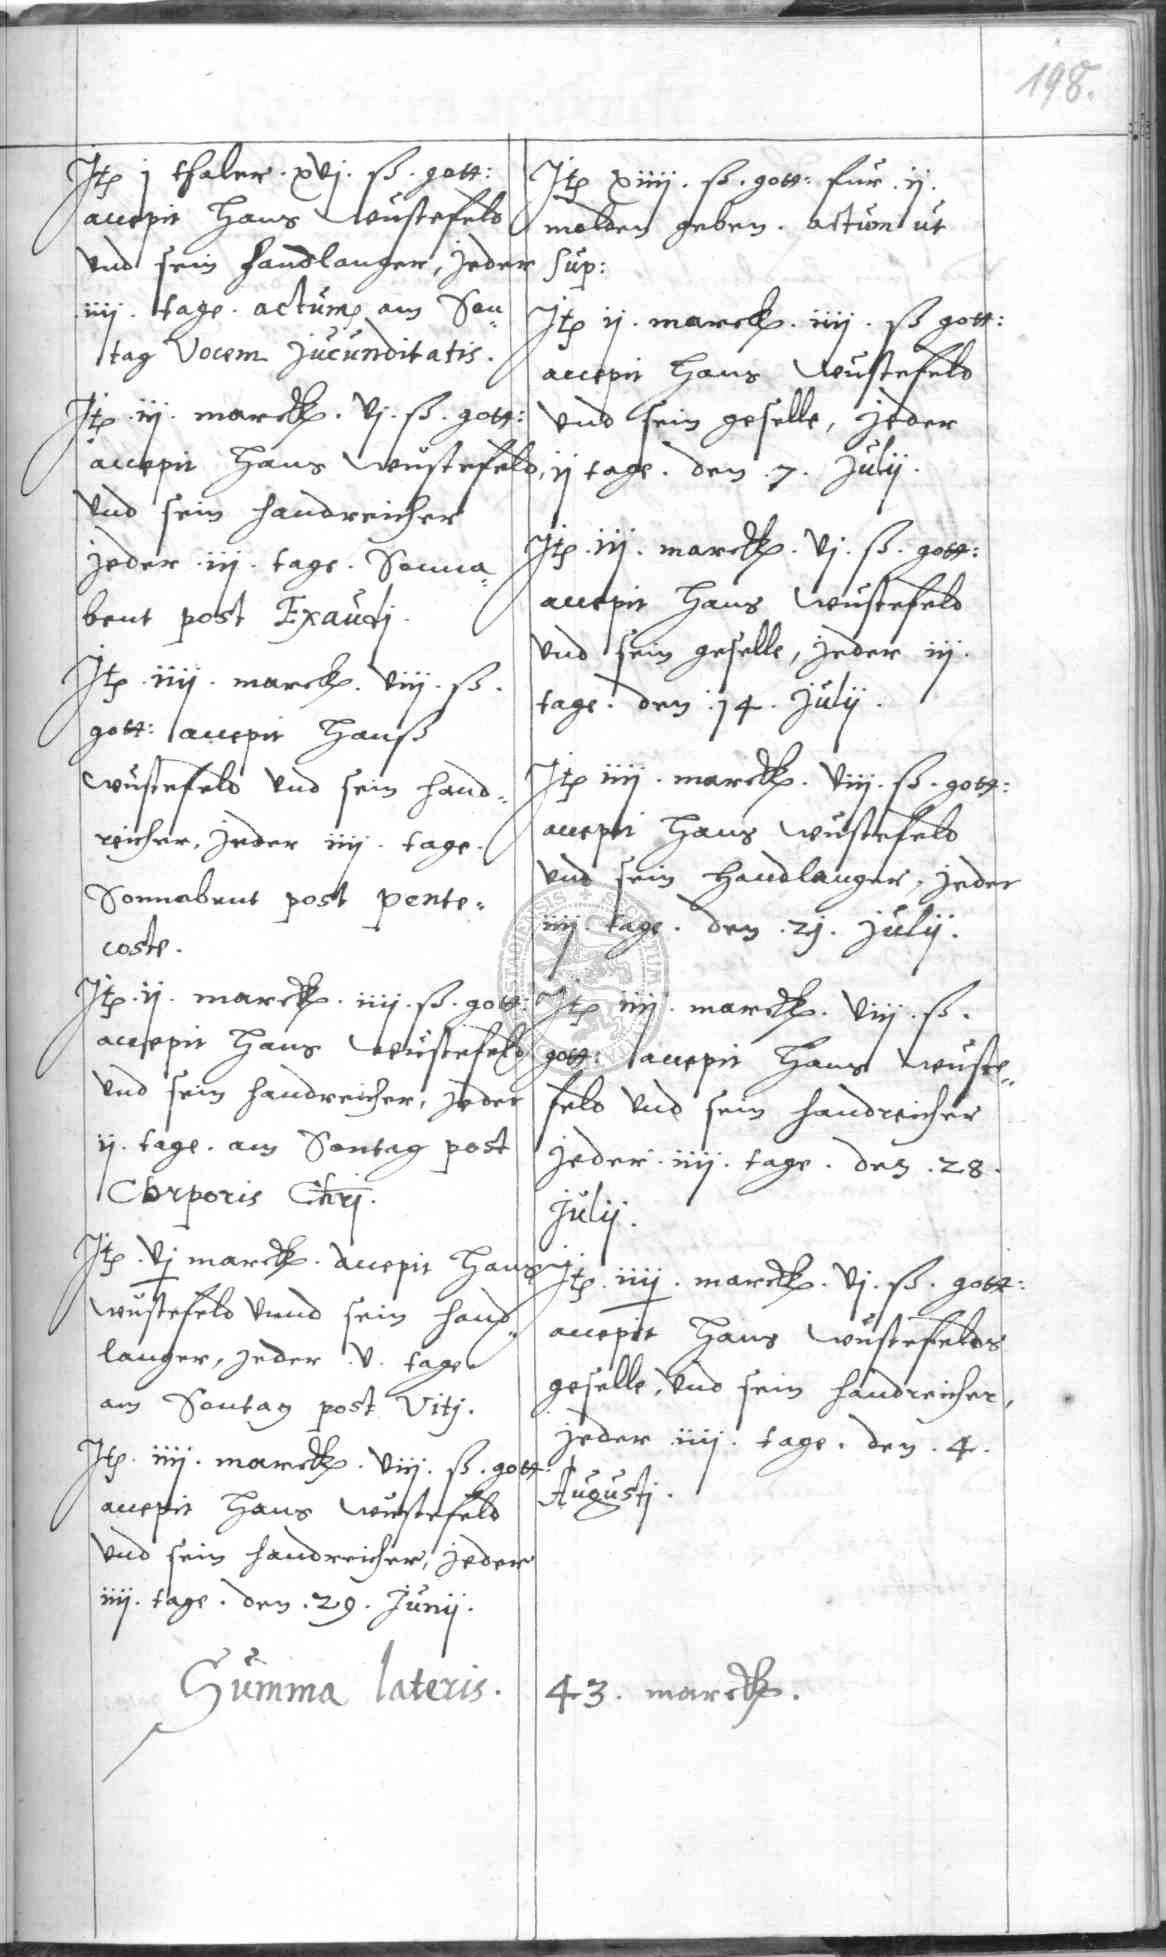 198.
Jtem j thaler. xvj. ß. gott:
accepit Hans Wüstefeld
vnd sein handlanger, jeder
iiij. tage. actum am Son„
tag Vocem Jucunditatis.
Jtem. iij. marck. vj. ß. gott:
accepit Hans Wüstefeld,
vnd sein handreicher
jeder. iij. tage. Sonna„
bent post Exaudj.
Jtem. iiij. marck. viij. ß.
gott: accepit Hanß
Wüstefeld vnd sein hand„
reicher, jeder iiij. tage.
Sonnabent post pente„
coste.
Jtem. ij. marck. iiij. ß. gott:
accepit Hans Wüstefeld
vnd sein handreicher, jeder
ij. tage. am Sontag post
Corporis Chrj.
Jtem. vj marck. accepit Hans
Wüstefeld vnnd sein hand„
langer, jeder. v. tage
am Sontag post Vitj.
Jtem. iiij. marck. viij. ß. gott:
accepit Hans Wüstefeld
vnd sein handreicher, jeder
iiij. tage. den. 29. Junij.
Jtem xiiij. ß. gott: fur. ij.
molden geben. actum ut
sup:
Jtem ij. marck. iiij. ß gott:
accepit Hans Wüstefeld
vnd sein geselle, jeder
ij tage. den. 7. Julij.
Jtem. iij. marck. vj. ß. gott:
accepit Hans Wüstefeld
vnd sein geselle, jeder iij.
tage. den. 14. Julij.
Jtem iiij. marck. viij. ß. gott:
accepit Hans Wüstefeld
vnd sein handlanger, jeder
iiij. tage. den. 21. Julij.
Jtem iiij. marck. viij. ß.
gott: accepit Hans Wüste„
feld vnd sein handreicher
jeder. iiij. tage. den. 28.
Julij.
Jtem. iiij. marck. vj. ß. gott:
accepit Hans Wüstefelds
geselle, vnd sein handreicher,
jeder iiij. tage. den. 4.
Augustj.
Summa lateris. 43. marck.